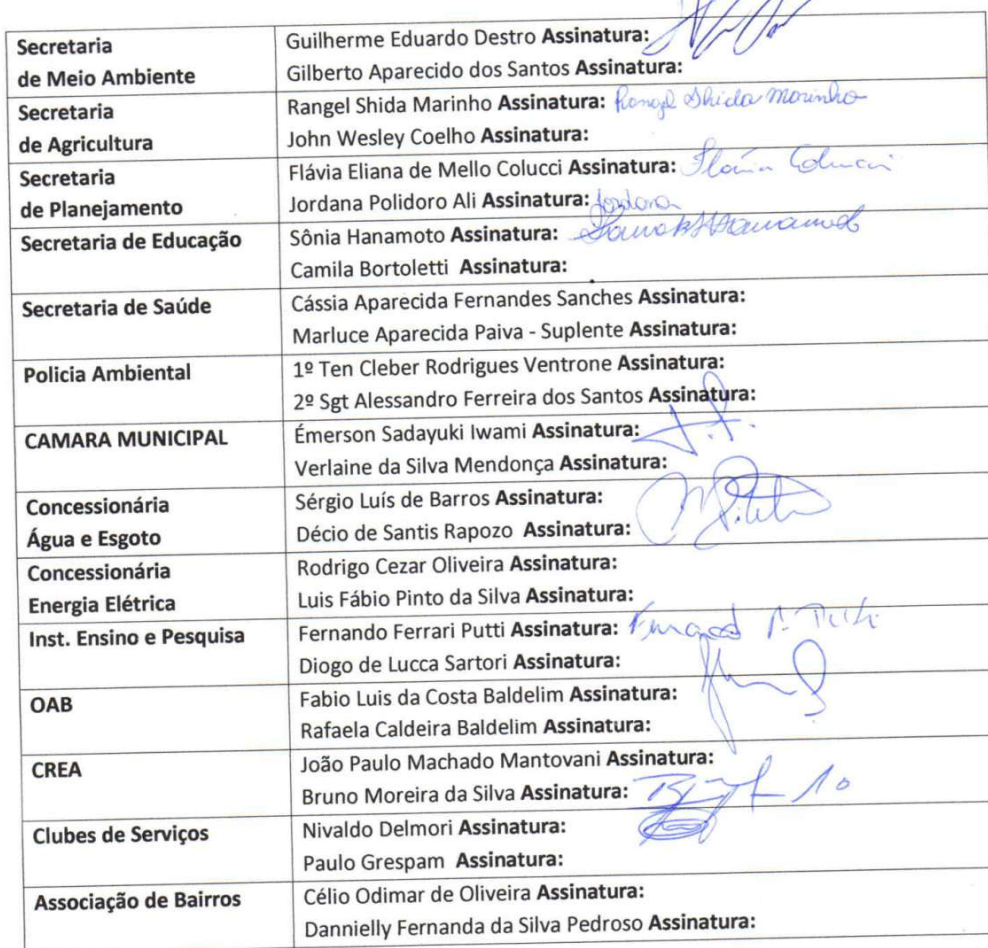 Secretaria
de Meio Ambiente
Guilherme Eduardo Destro Assinatura:
Gilberto Aparecido dos Santos Assinatura:
Secretaria
de Agricultura
Rangel Shida Marinho Assinatura: Rangel Shida Marinho
John Wesley Coelho Assinatura:
Secretaria
de Planejamento
Flávia Eliana de Mello Colucci Assinatura: Flávia Colucci
Jordana Polidoro Ali Assinatura: Jordana
Secretaria de Educação
Sônia Hanamoto Assinatura:
Camila Bortoletti Assinatura:
Secretaria de Saúde
Cássia Aparecida Fernandes Sanches Assinatura:
Marluce Aparecida Paiva - Suplente Assinatura:
Policia Ambiental
1º Ten Cleber Rodrigues Ventrone Assinatura:
2º Sgt Alessandro Ferreira dos Santos Assinatura:
CAMARA MUNICIPAL
Émerson Sadayuki Iwami Assinatura:
Verlaine da Silva Mendonça Assinatura:
Concessionária
Água e Esgoto
Sérgio Luís de Barros Assinatura:
Décio de Santis Rapozo Assinatura:
Concessionária
Energia Elétrica
Rodrigo Cezar Oliveira Assinatura:
Luis Fábio Pinto da Silva Assinatura:
Inst. Ensino e Pesquisa
Fernando Ferrari Putti Assinatura:
Diogo de Lucca Sartori Assinatura:
OAB
Fabio Luis da Costa Baldelim Assinatura:
Rafaela Caldeira Baldelim Assinatura:
CREA
João Paulo Machado Mantovani Assinatura:
Bruno Moreira da Silva Assinatura:
Clubes de Serviços
Nivaldo Delmori Assinatura:
Paulo Grespam Assinatura:
Associação de Bairros
Célio Odimar de Oliveira Assinatura:
Dannielly Fernanda da Silva Pedroso Assinatura: